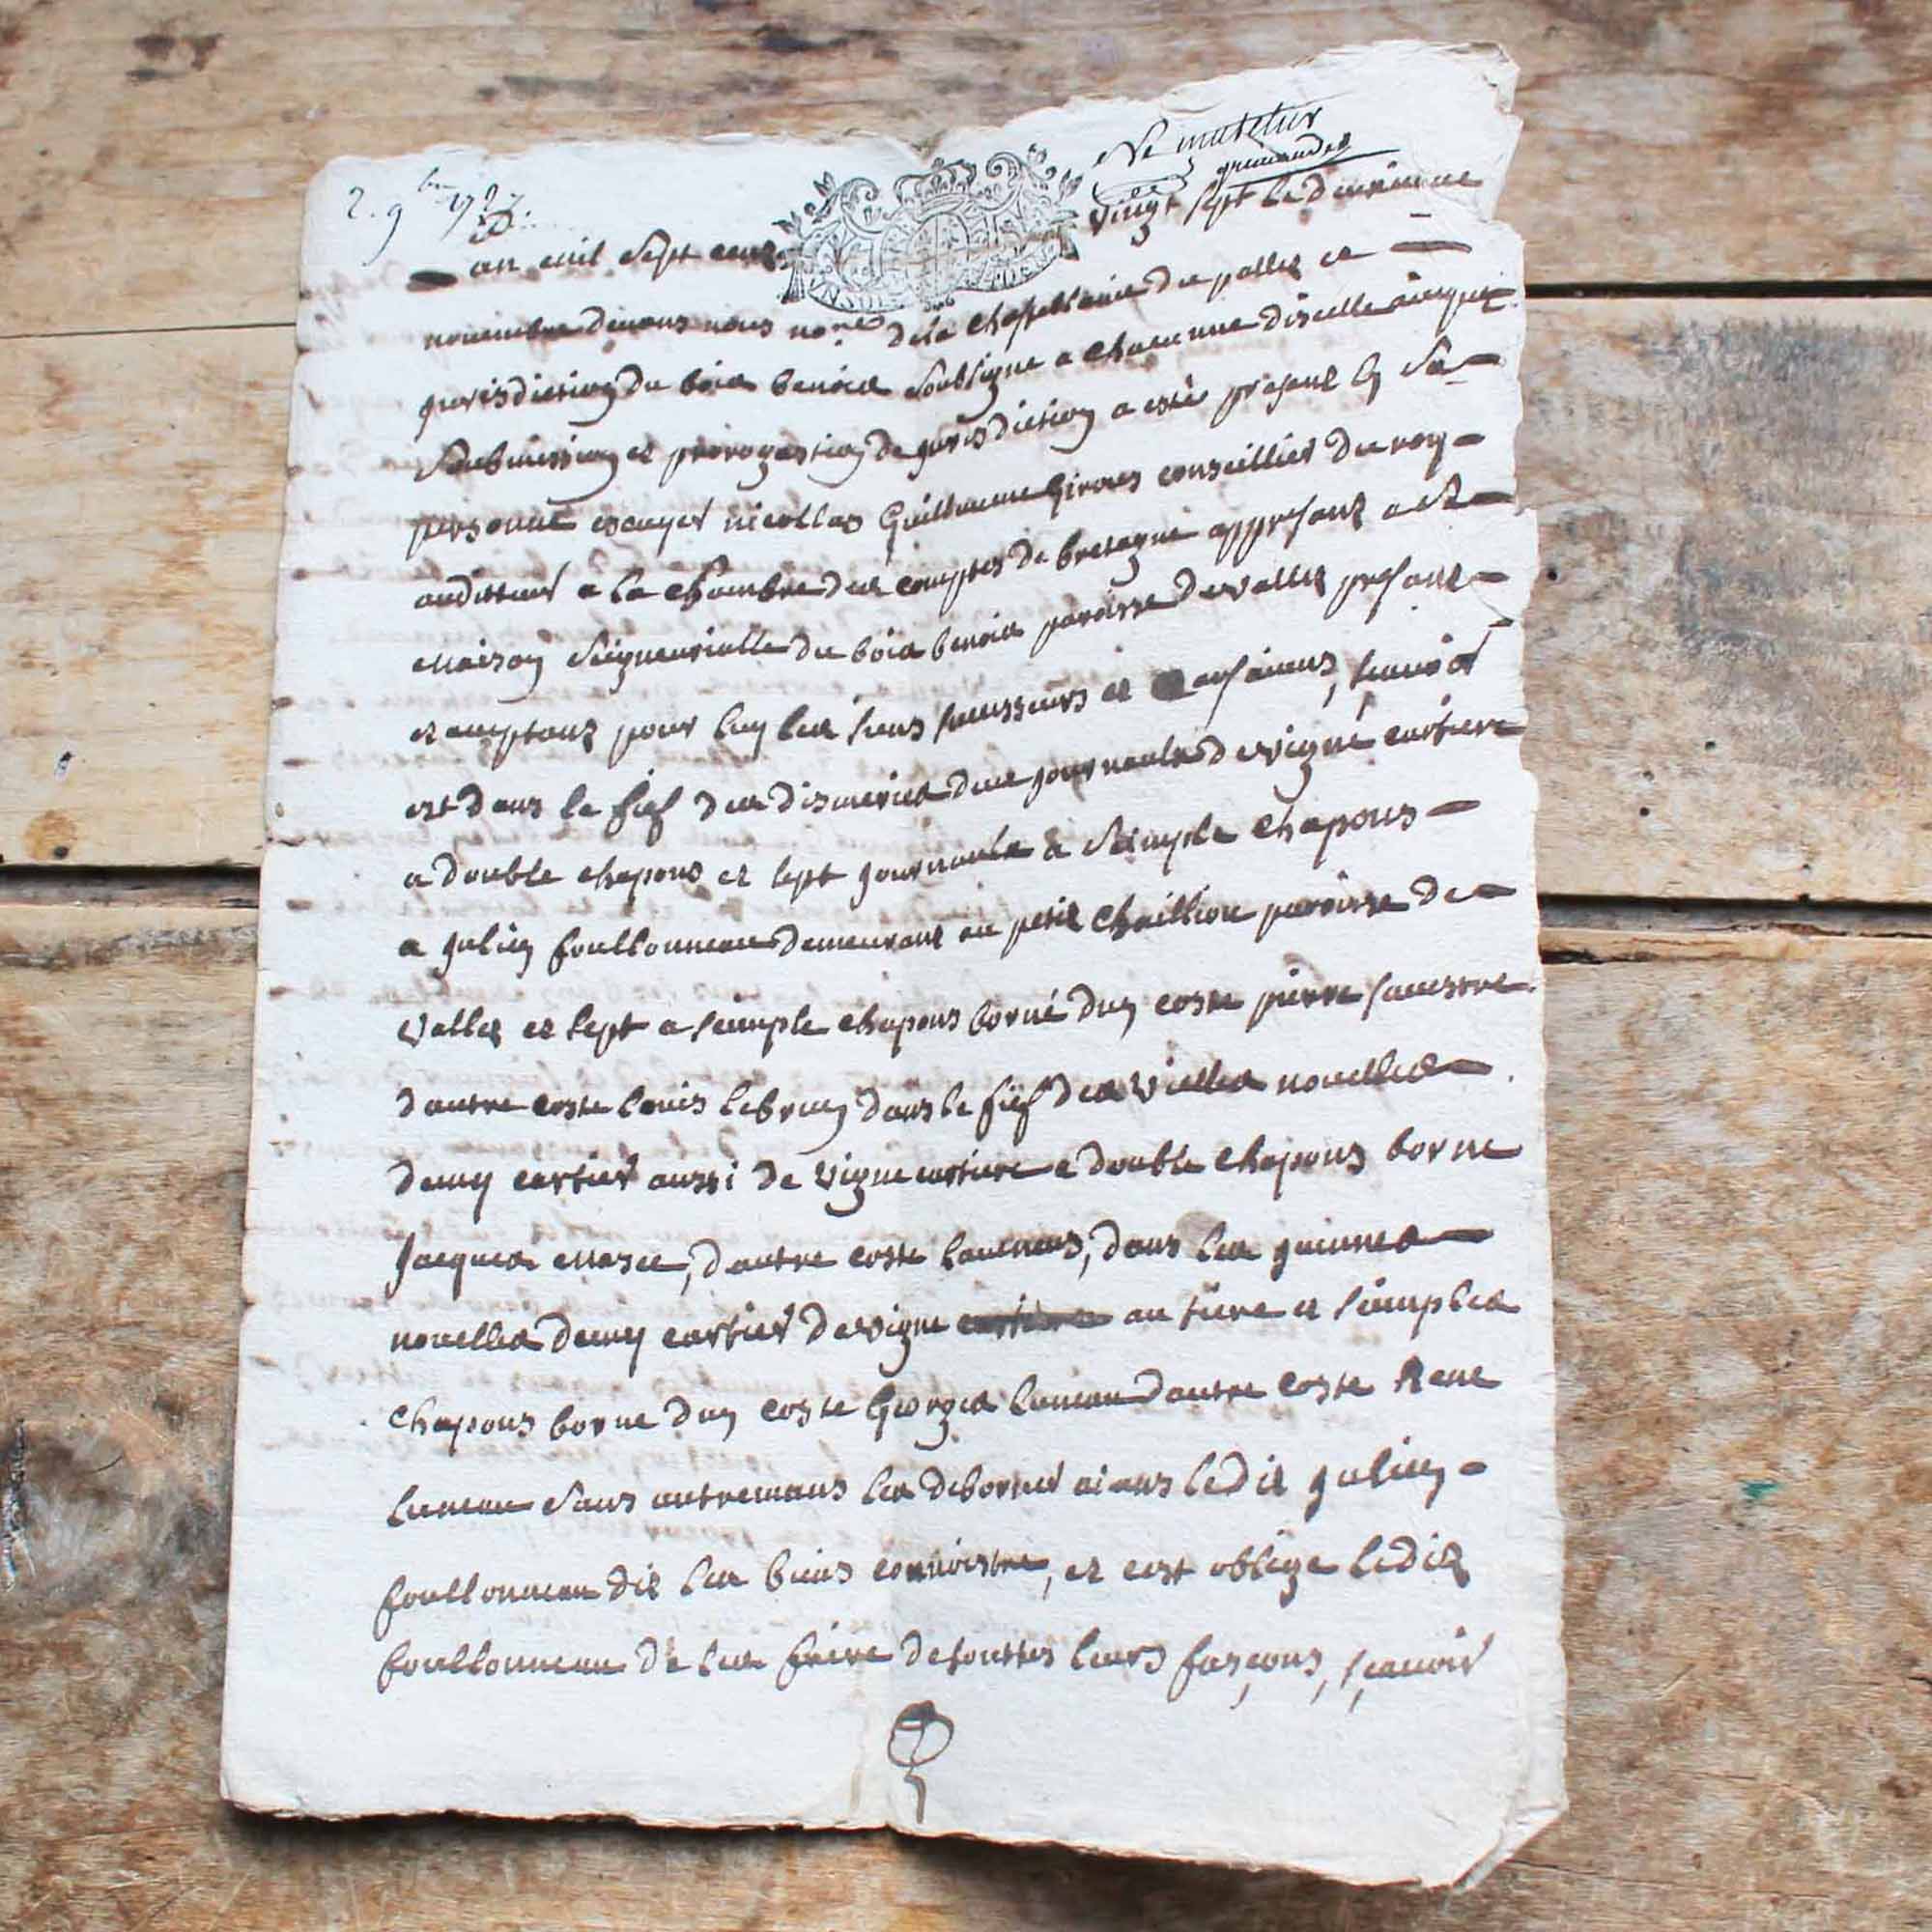 2. 9bre 1727
an mil sept cents vingt sept le deuxieme
nouembre deuans nous nores de la chastellainie du pallet et
jurisdiction du bois benoist soubsigne a chacunne disselle aicque
soubmission et prorogation de jurisdiction a esté presant en sa
personne escuyer nicollas Guillaume Giroust conseillier du roy
auditteur a la chambre des comptes de bretagne
maison seigneurialle du bois benoist paroisse de vallet presant
et acceptant pour luy les siens successeurs et
est dans le fief des dismeries deux journaulx de vigne cartiere
a double chapons et sept journaulx a simple chapons
a julien foullonneau demeurant au petit chaillou paroisse de
vallet et sept a simple chapons borné dun coste pierre sauestre
dautre coste louis lebrun dans le fief des vielles nouelles
demy cartier aussi de vigne cartiere a double chapons borne
Jacques dautre coste dans les
nouelles demy cartier de vigne cartiere au tiere et simples
chapons borne dun coste Georges luneau dautre coste Rene
luneau sans autremans les deborner aians ledit julien
foullonneau dit les biens connoistre, et cest oblige ledit
foullonneau de les faire de touttes leurs fasçons, sçauoir